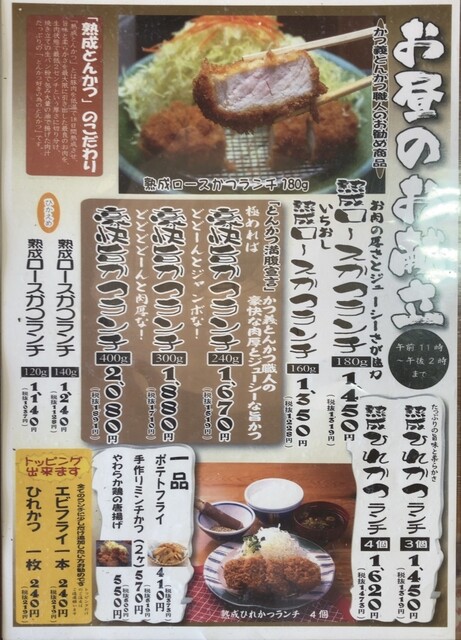 お昼のお献立
午前11時
〜午後2時
まで
▲かつ義とんかつ職人のお勧め商品▼
熟成ロースかつランチ180g
「熟成とんかつ」のこだわり
お肉の厚さとジューシーさが魅力
熟成ロースかつランチ
180g
1,450円
(税抜1319円)
いちおし
熟成ロースかつランチ
160g
1,350円
(税抜1228円)
「とんかつ満腹宣言」
かつ義とんかつ職人の
豪快な肉厚とジューシーな旨かつ
極めれば
豪快ロースかつランチ
240g
1,670円
どどーんとジャンボな!
豪快ロースかつランチ
300g
1,880円
どどどどーんと肉厚な!
豪快ロースかつランチ
400g
2,080円
(税抜1891円)
ひかえめ
熟成ロースかつランチ
140g
1,240円
(税抜1128円)
熟成ロースかつランチ
120g
1,140円
(税抜1037円)
たっぷりの旨味と柔らかさ
熟成ひれかつランチ
3個
1,450円
(税抜1319円)
熟成ひれかつランチ
4個
1,620円
(税抜1473円)
一品
ポテトフライ
410円
(税抜373円)
手作りミンチかつ(2ヶ)
570円
(税抜519円)
やわらか鶏の唐揚げ
550円
(税抜500円)
トッピング
出来ます
エビフライ 一本
240円
(税抜219円)
ひれかつ 一枚
240円
(税抜219円)
熟成ひれかつランチ 4個